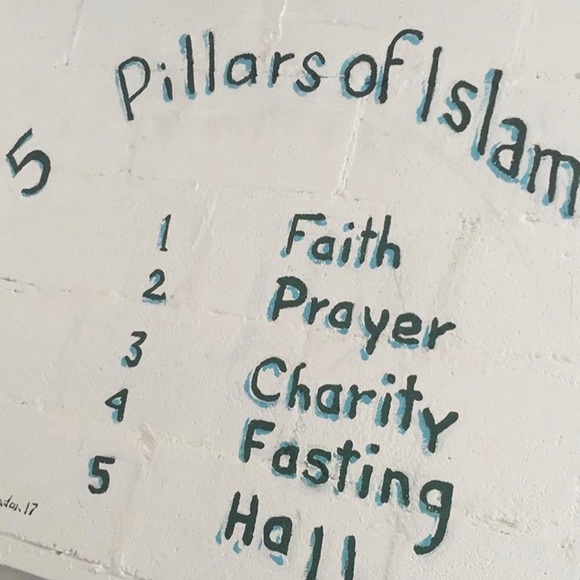 5 Pillars of Islam
1 Faith
2 Prayer
3 Charity
4 Fasting
5 Hall